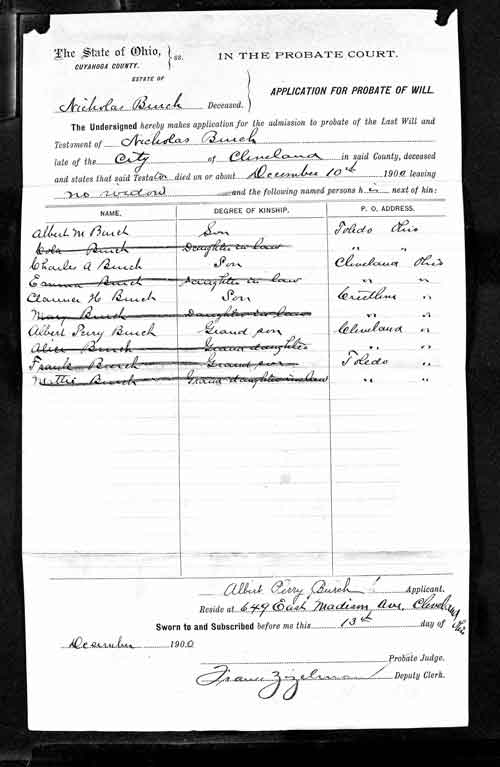 The State of Ohio, } ss.
CUYAHOGA COUNTY.
IN THE PROBATE COURT.
ESTATE OF
Nicholas Burch Deceased.
APPLICATION FOR PROBATE OF WILL.
The Undersigned hereby makes application for the admission to probate of the Last Will and
Testament of Nicholas Burch
late of the City of Cleveland in said County, deceased
and states that said Testator died on or about December 10th 1900 leaving
no widow and the following named persons his next of kin:
NAME. DEGREE OF KINSHIP. P. O. ADDRESS.
Albert M Burch Son Toledo Ohio
Cola Burch Daughter in law " "
Charles A Burch Son Cleveland Ohio
Emma Burch Daughter in law " "
Clarence H Burch Son Crestline "
Mary Burch Daughter in law " "
Albert Perry Burch Grand son Cleveland "
Alice Burch Grand daughter " "
Frank Burch Grand son Toledo "
Nettie Burch Grand daughter in law " "
Albert Perry Burch Applicant.
Reside at 649 East Madison Ave, Cleveland Ohio
Sworn to and Subscribed before me this 13th day of
December 1900
Probate Judge.
Deputy Clerk.